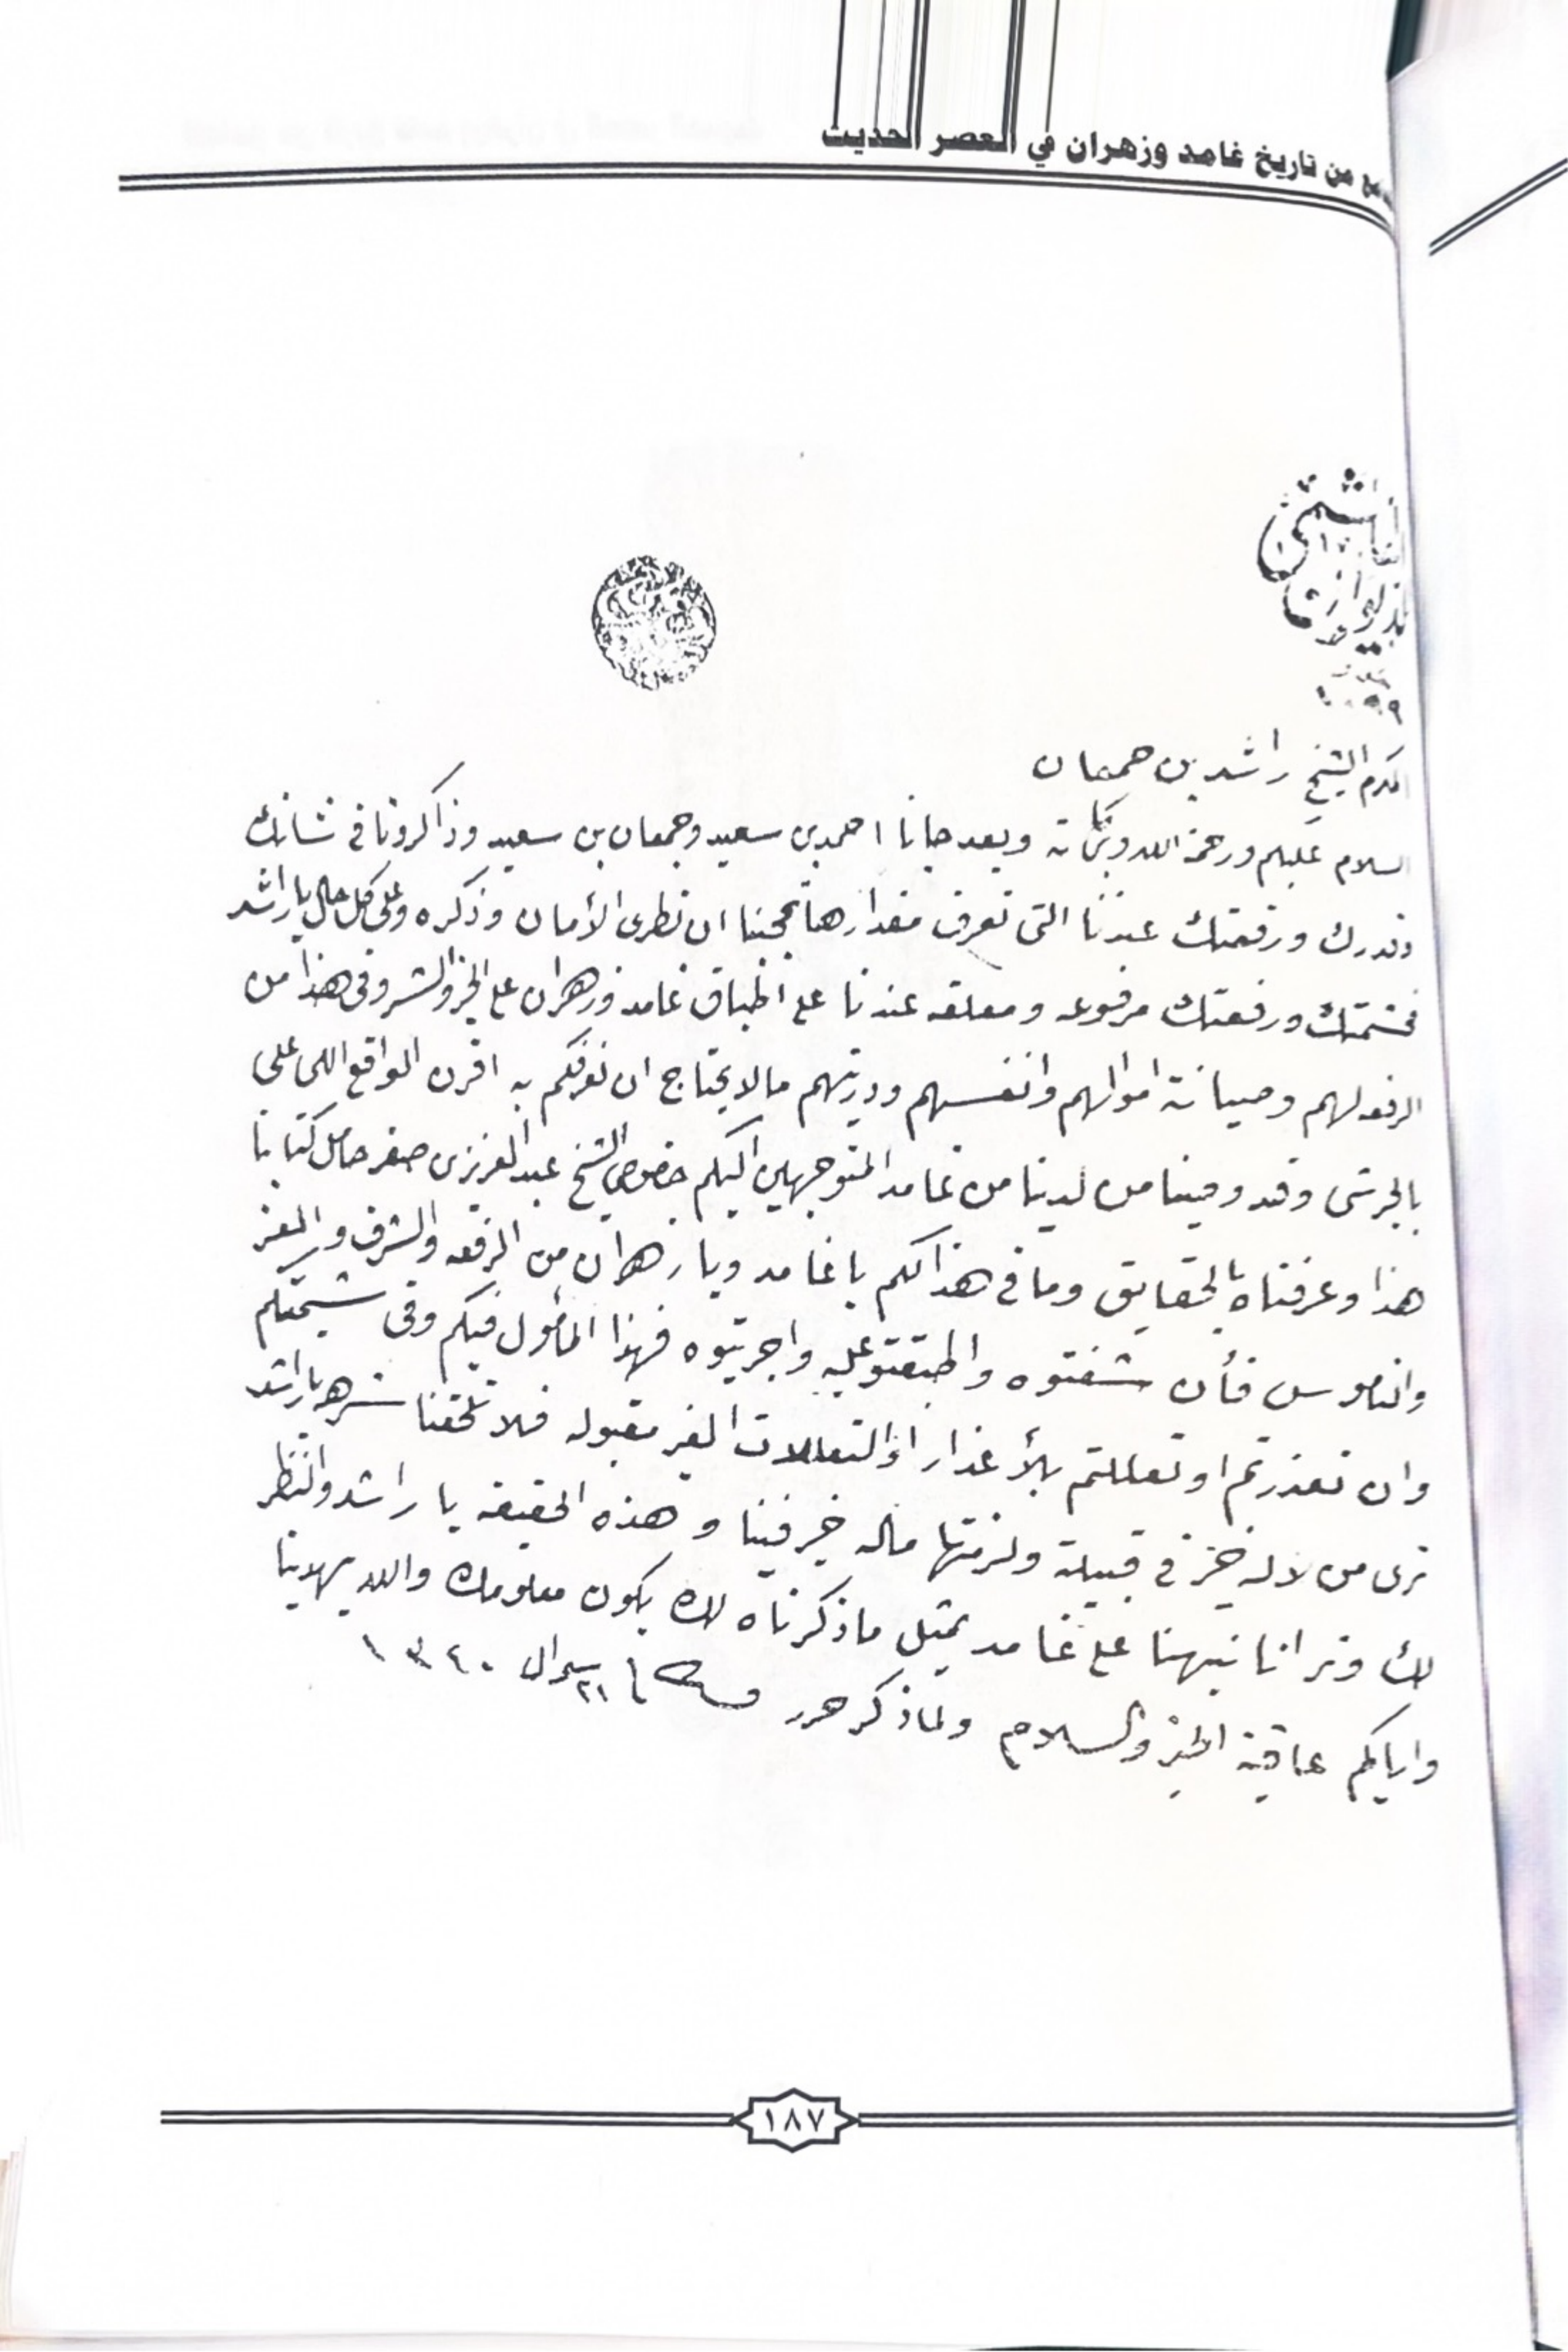 من تاريخ غامد وزهران في العصر الحديث
الهاشمي
الديوان
المكرم الشيخ راشد بن جمعان
السلام عليكم ورحمة الله وبركاته وبعد جانا احمد بن سعيد وجمعان بن سعيد وذاكرونا في شانك
وقدرك ورفعتك عندنا التى تعرف مقدارها تعجبنا ان تطرى الأمان وذكره وعلى كل حال ياراشد
فحشمتك ورفعتك مرفوعه ومعلقه عندنا على اطباق غامد وزهران على الخير والشر وفى هذا من
الرفعه لهم وصيانة اموالهم وانفسهم وديرتهم مالا يحتاج ان نعرفكم به اقرن الواقع اللى على
بالجرشى وقد وصينا من لدينا من غامد المتوجهين اليكم خصوصى الشيخ عبد العزيز بن صقر حامل كتابنا
هذا وعرفناه بالحقايق وما في هذا لكم يا غامد ويا زهران من الرفعه والشرف والمعز
والناموس فأن شفتوه واطبقتو عليه واجريتوه فهذا المأمول فيكم وفى شيمتكم
وان تعذرتم او تعللتم بالأعذار او التعاللات الغير مقبوله فلا تلحقنا شرهه ياراشد
ترى من لاله خير في قبيلة ولزمتها ماله خير فينا وهذه الحقيقه يا راشد والنظر
لك وترانا نبهنا على غامد بمثل ما ذكرناه لك يكون معلومك والله يهدينا
واياكم عاقبة الخير والسلام ولماذكر حرر ٢١ شوال ١٣٤٠
١٨٧